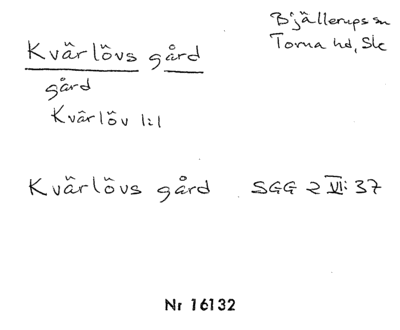 Bjällerups sn
Torna hd, Sk
Kvärlövs gård
gård
Kvärlöv 1:1
Kvärlövs gård SGG 2 VI: 37
Nr 16132